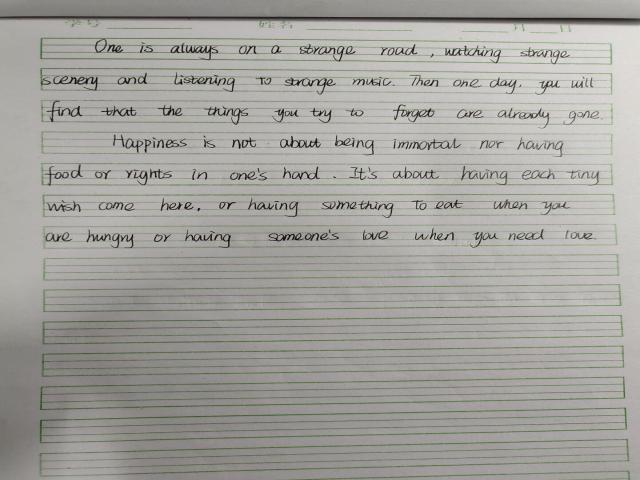 学号 姓名 月 日
One is always on a strange road, watching strange
scenery and listening to strange music. Then one day, you will
find that the things you try to forget are already gone.
Happiness is not about being immortal nor having
food or rights in one's hand. It's about having each tiny
wish come here, or having something to eat when you
are hungry or having someone's love when you need love.